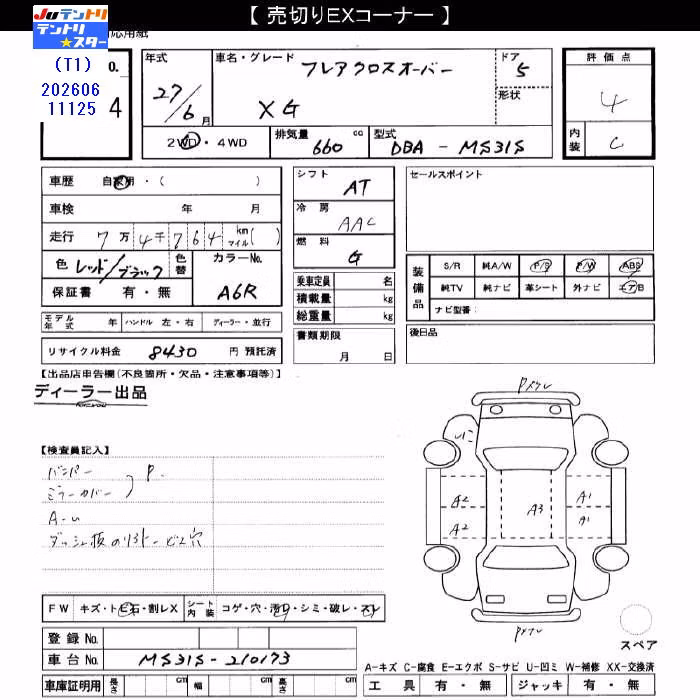 【 売切りEXコーナー 】
JUテントリ
テントリ★スター
応用紙
(T1)
202606
11125
o.
4
年式
27/6月
車名・グレード
フレアクロスオーバー
XG
ドア
5
形状
評価点
4
内装
C
2WD・4WD
排気量 660 cc
型式 DBA - MS31S
車歴 自家用・( )
車検 年 月
走行 7万4千764 km マイル( )
色 レッド/ブラック
色替
カラーNo.
A6R
保証書 有・無
シフト AT
冷房 AAC
燃料 G
乗車定員 名
積載量 kg
総重量 kg
書類期限
月 日
セールスポイント
装備品
S/R 純A/W P/S P/W ABS
純TV 純ナビ 革シート 外ナビ エアB
ナビ型番:
後日品
モデル年式 年 ハンドル 左・右 ディーラー・並行
リサイクル料金 8430 円 預託済
【出品店申告欄(不良箇所・欠品・注意事項等)】
ディーラー出品
【検査員記入】
バンパー
ミラーカバー ) P.
A-u
ダッシュ板のリストービス穴
Pメクレ
A2
A2
A3
A1
A1
Pメクレ
スペア
FW キズ・トビ石・割レX
シート内装 コゲ・穴・汚レ・シミ・破レ・スレ
登録No.
車台No. MS31S-210173
車庫証明用 長さ cm 幅 cm 高さ cm
A-キズ C-腐食 E-エクボ S-サビ U-凹ミ W-補修 XX-交換済
工具 有・無 ジャッキ 有・無